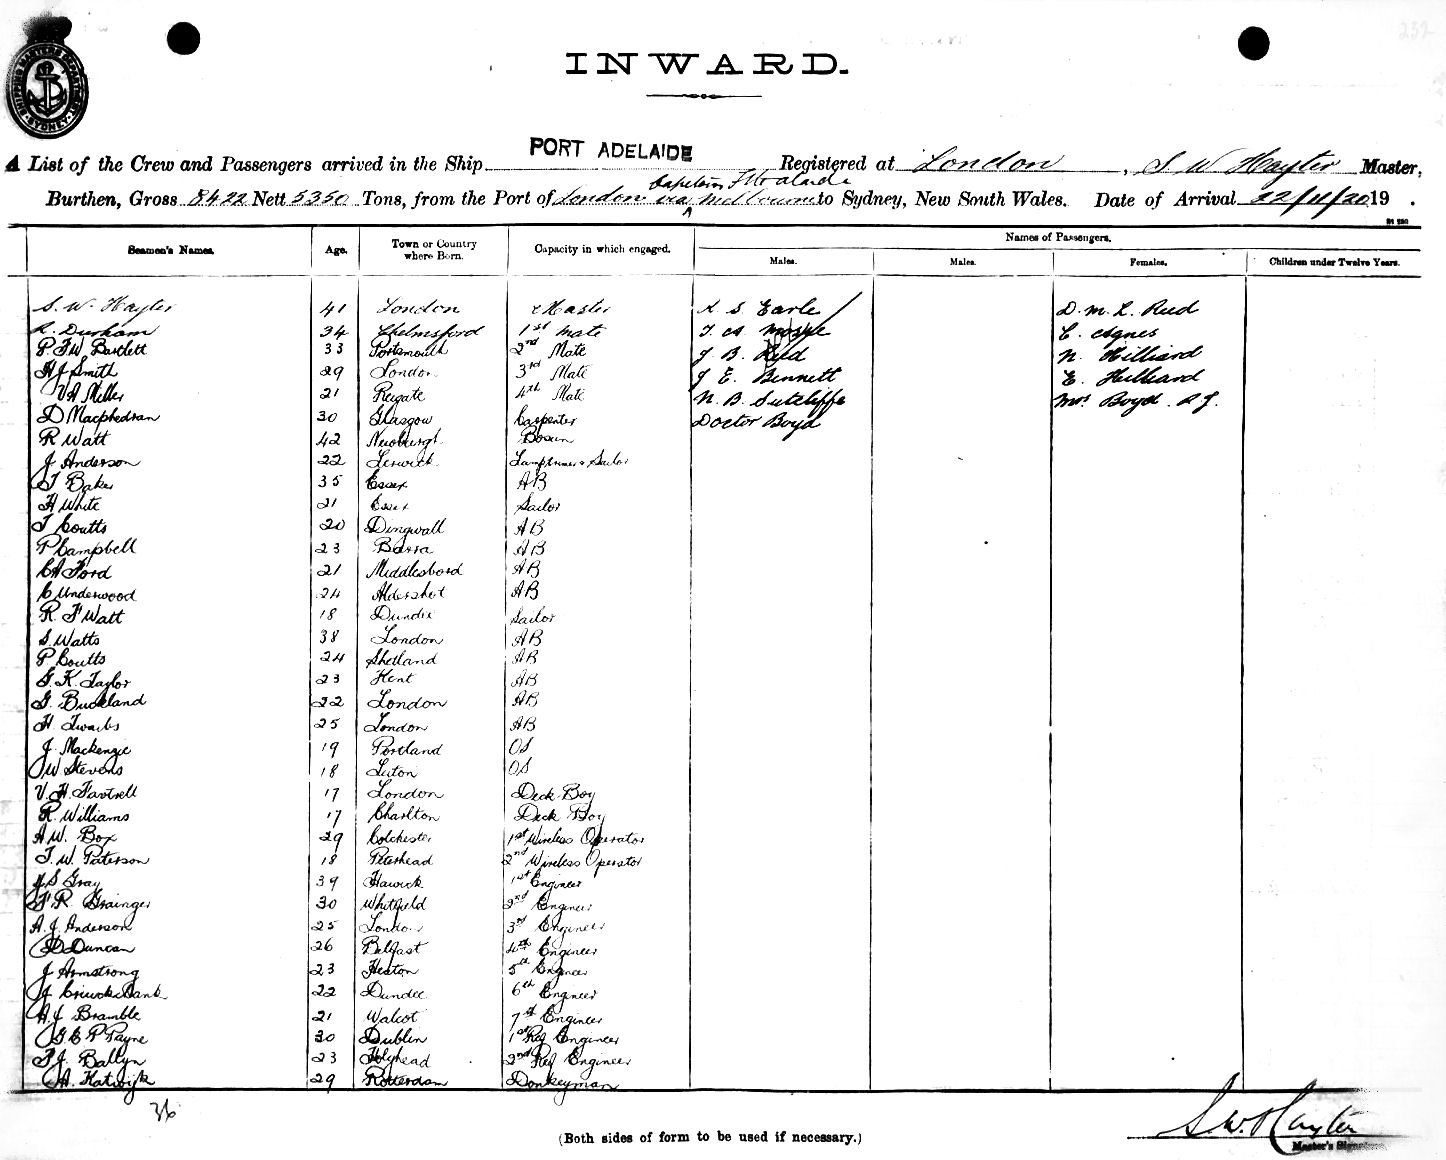 SHIPPING MASTERS DEPARTMENT SYDNEY
INWARD.
A List of the Crew and Passengers arrived in the Ship PORT ADELAIDE Registered at London, S W Hayter Master,
Burthen, Gross 8422 Nett 5350 Tons, from the Port of London via Melbourne to Sydney, New South Wales. Date of Arrival 22/11/20 19 .
Seamen's Names. Age. Town or Country where Born. Capacity in which engaged. Names of Passengers.
Males. Males. Females. Children under Twelve Years.
S. W. Hayter 41 London Master K S Earle D. M. L. Reid
R. Durham 34 Chelmsford 1st Mate E. Agnes
P. F. W Bartlett 33 Portsmouth 2nd Mate J B Reid N Hilliard
H J Smith 29 London 3rd Mate J E. Bennett E. Hilliard
V A Miller 21 Reigate 4th Mate N. B. Sutcliffe Mrs Boyd
D Macphedran 30 Glasgow Carpenter Doctor Boyd
R Watt 42 Newburgh Bosun
J Anderson 22 Lerwick Lamptrimer & Sailor
T Baker 35 Essex AB
H White 21 Essex Sailor
T Coutts 20 Dingwall AB
P Campbell 23 Barra AB
C A Ford 21 Middlesboro AB
C Underwood 24 Aldershot AB
R. F Watt 18 Dundee Sailor
S. Watts 38 London AB
P Coutts 24 Shetland AB
G. K. Taylor 23 Kent AB
G. Buckland 22 London AB
H 25 London AB
J. Mackenzie 19 Portland OS
J W Stevens 18 Luton OS
V. H. 17 London Deck Boy
R. Williams 17 Charlton Deck Boy
A W. Box 29 Colchester 1st Wireless Operator
T. W. Paterson 18 Peterhead 2nd Wireless Operator
J S Gray 39 Hawick 1st Engineer
F R. Grainger 30 Whitfield 2nd Engineer
A. J. Anderson 25 London 3rd Engineer
D Duncan 26 Belfast 4th Engineer
J Armstrong 23 Heaton 5th Engineer
J 22 Dundee 6th Engineer
A J Bramble 21 Walcot 7th Engineer
G E P Payne 30 Dublin 1st Ref Engineer
P J. Ballyn 23 Holyhead 2nd Ref Engineer
A. Katwijk 29 Rotterdam Donkeyman
36
S. W. Hayter
(Both sides of form to be used if necessary.)